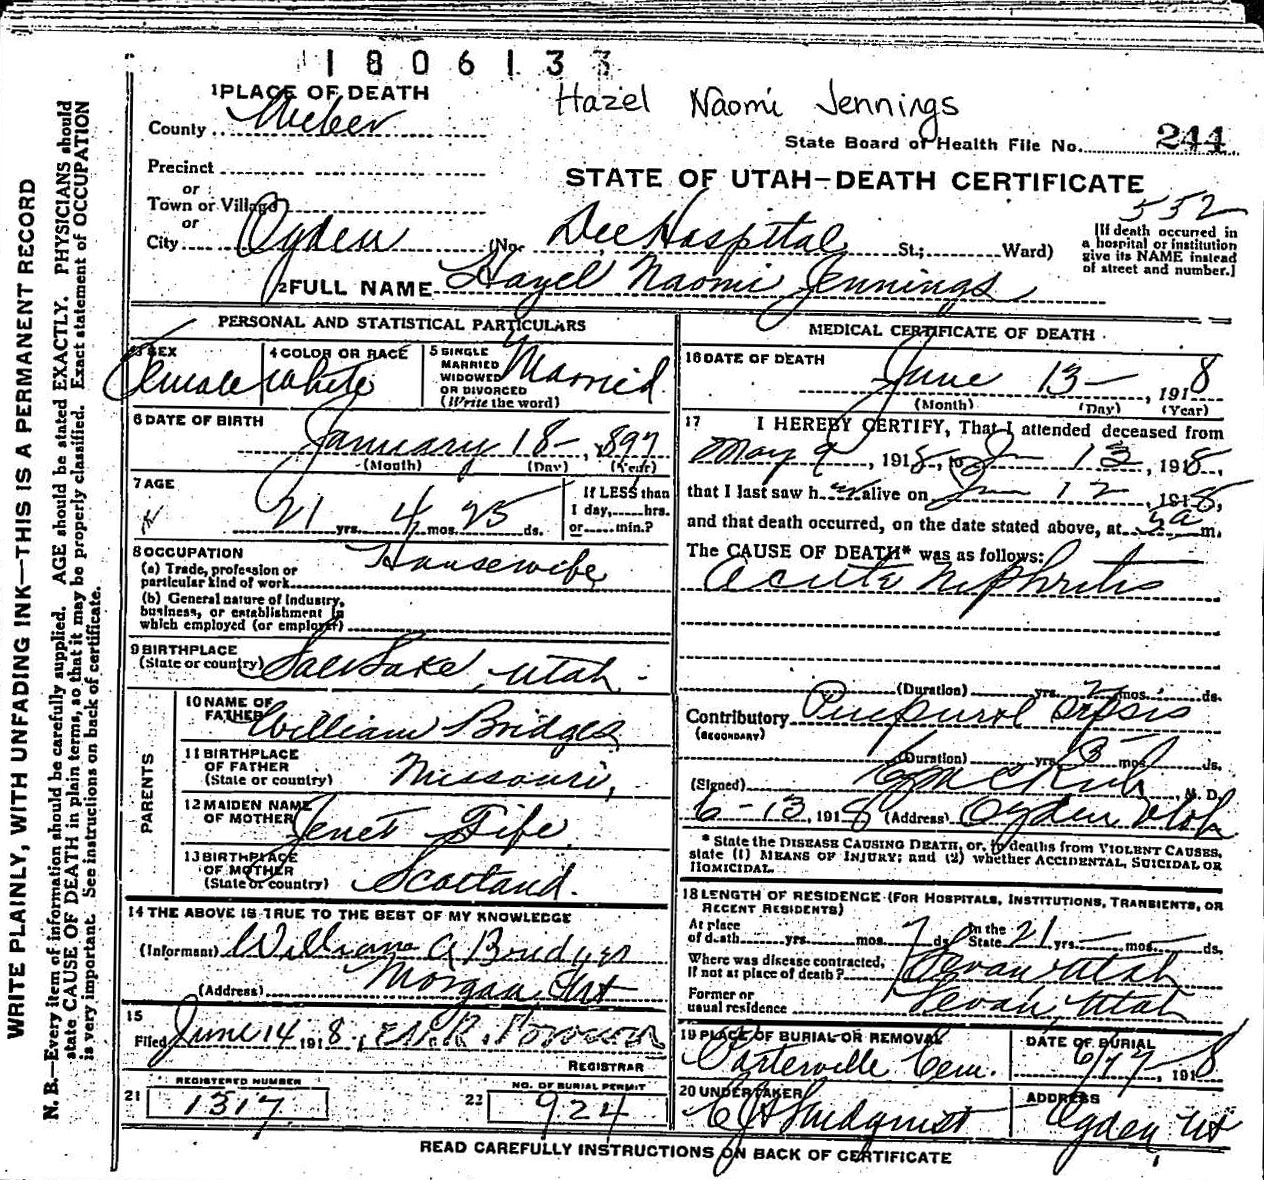 1806133
Hazel Naomi Jennings
1 PLACE OF DEATH
County Weber
State Board of Health File No. 244
Precinct
or
Town or Village
or
STATE OF UTAH—DEATH CERTIFICATE
552
City Ogden (No. Dee Hospital St.; Ward)
[If death occurred in
a hospital or institution
give its NAME instead
of street and number.]
2 FULL NAME Hazel Naomi Jennings
PERSONAL AND STATISTICAL PARTICULARS
3 SEX
Female
4 COLOR OR RACE
White
5 SINGLE
MARRIED
WIDOWED
OR DIVORCED
(Write the word)
Married
6 DATE OF BIRTH
January 18 – , 1897
(Month) (Day) (Year)
7 AGE
21 yrs. 4 mos. 25 ds.
If LESS than
1 day, hrs.
or min.?
8 OCCUPATION
(a) Trade, profession or
particular kind of work
Housewife
(b) General nature of Industry,
business, or establishment in
which employed (or employer)
9 BIRTHPLACE
(State or country) Salt Lake, Utah.
PARENTS
10 NAME OF
FATHER William Bridges
11 BIRTHPLACE
OF FATHER
(State or country) Missouri,
12 MAIDEN NAME
OF MOTHER Jenet Fife
13 BIRTHPLACE
OF MOTHER
(State or country) Scotland.
14 THE ABOVE IS TRUE TO THE BEST OF MY KNOWLEDGE
(Informant) William A Bridges
(Address) Morgan Ut
15
Filed June 14 1918, Brown
REGISTRAR
21 REGISTERED NUMBER
1317
22 NO. OF BURIAL PERMIT
924
MEDICAL CERTIFICATE OF DEATH
16 DATE OF DEATH
June 13 – , 1918
(Month) (Day) (Year)
17 I HEREBY CERTIFY, That I attended deceased from
May 9, 1918, to Jun 13, 1918,
that I last saw her alive on Jun 12, 1918,
and that death occurred, on the date stated above, at 5a m.
The CAUSE OF DEATH* was as follows:
Acute Nephritis
(Duration) yrs. 2 mos. ds.
Contributory Puerpural Sepsis
(SECONDARY)
(Duration) yrs. ds.
(Signed) M. D.
6–13, 1918 (Address) Ogden Utah
* State the DISEASE CAUSING DEATH, or, in deaths from VIOLENT CAUSES,
state (1) MEANS OF INJURY; and (2) whether ACCIDENTAL, SUICIDAL OR
HOMICIDAL.
18 LENGTH OF RESIDENCE (FOR HOSPITALS, INSTITUTIONS, TRANSIENTS, OR
RECENT RESIDENTS)
At place
of death yrs. mos. 7 ds.
In the
State 21 yrs. — mos. — ds.
Where was disease contracted,
if not at place of death? Devan Utah
Former or
usual residence Devan, Utah
19 PLACE OF BURIAL OR REMOVAL
Porterville Cem.
DATE OF BURIAL
6/17, 1918
20 UNDERTAKER
Lindquist
ADDRESS
Ogden Ut
READ CAREFULLY INSTRUCTIONS ON BACK OF CERTIFICATE
WRITE PLAINLY, WITH UNFADING INK—THIS IS A PERMANENT RECORD
N. B.—Every item of information should be carefully supplied. AGE should be stated EXACTLY. PHYSICIANS should
state CAUSE OF DEATH in plain terms, so that it may be properly classified. Exact statement of OCCUPATION
is very important. See instructions on back of certificate.